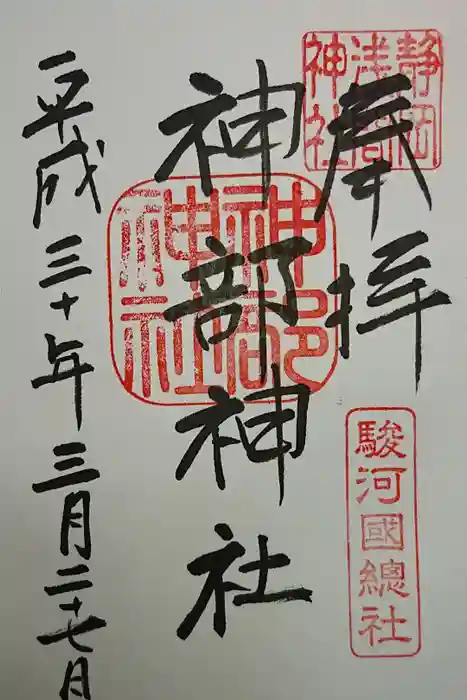 静岡
浅間
神社
奉拝
駿河國總社
神部神社
神部
神社
平成三十年三月二十七日